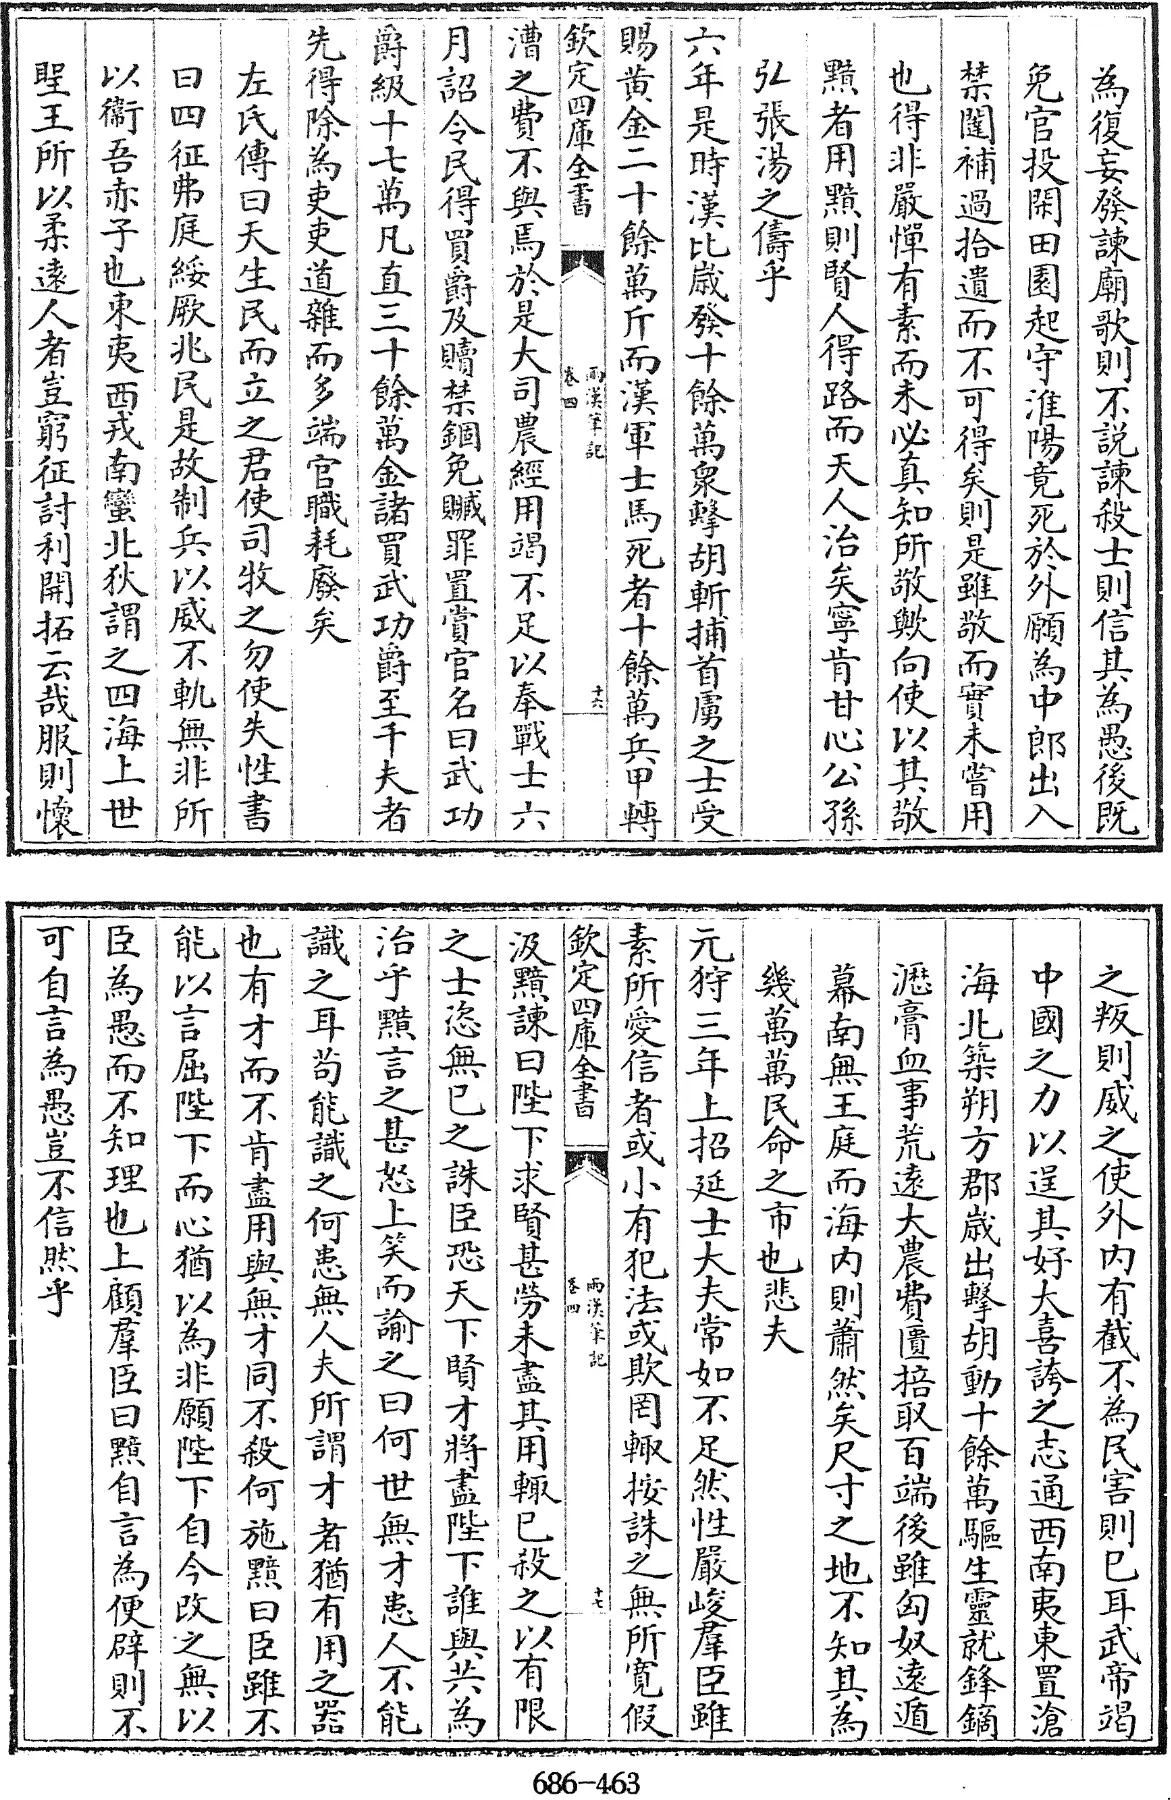 為復妄發諫廟歌則不説諫殺士則信其為愚後既
免官投閑田園起守淮陽竟死於外願為中郎出入
禁闥補過拾遺而不可得矣則是雖敬而實未嘗用
也得非嚴憚有素而未必真知所敬歟向使以其敬
黯者用黯則賢人得路而天人治矣寧肯甘心公孫
弘張湯之儔乎
六年是時漢比嵗發十餘萬衆擊胡斬捕首虜之士受
賜黄金二十餘萬斤而漢軍士馬死者十餘萬兵甲轉
欽定四庫全書
兩漢筆記
卷四
十六
漕之費不與焉於是大司農經用竭不足以奉戰士六
月詔令民得買爵及贖禁錮免贓罪置賞官名曰武功
爵級十七萬凡直三十餘萬金諸買武功爵至千夫者
先得除為吏吏道雜而多端官職耗廢矣
左氏傳曰天生民而立之君使司牧之勿使失性書
曰四征弗庭綏厥兆民是故制兵以威不軌無非所
以衞吾赤子也東夷西戎南蠻北狄謂之四海上世
聖王所以柔遠人者豈窮征討利開拓云哉服則懷
之叛則威之使外内有截不為民害則已耳武帝竭
中國之力以逞其好大喜誇之志通西南夷東置滄
海北築朔方郡嵗出擊胡動十餘萬驅生靈就鋒鏑
瀝膏血事荒遠大農費匱掊取百端後雖匈奴遠遁
幕南無王庭而海内則蕭然矣尺寸之地不知其為
幾萬萬民命之市也悲夫
元狩三年上招延士大夫常如不足然性嚴峻羣臣雖
素所愛信者或小有犯法或欺罔輒按誅之無所寛假
欽定四庫全書
兩漢筆記
卷四
十七
汲黯諫曰陛下求賢甚勞未盡其用輒已殺之以有限
之士恣無已之誅臣恐天下賢才將盡陛下誰與共為
治乎黯言之甚怒上笑而諭之曰何世無才患人不能
識之耳苟能識之何患無人夫所謂才者猶有用之器
也有才而不肯盡用與無才同不殺何施黯曰臣雖不
能以言屈陛下而心猶以為非願陛下自今改之無以
臣為愚而不知理也上顧羣臣曰黯自言為便辟則不
可自言為愚豈不信然乎
686-463